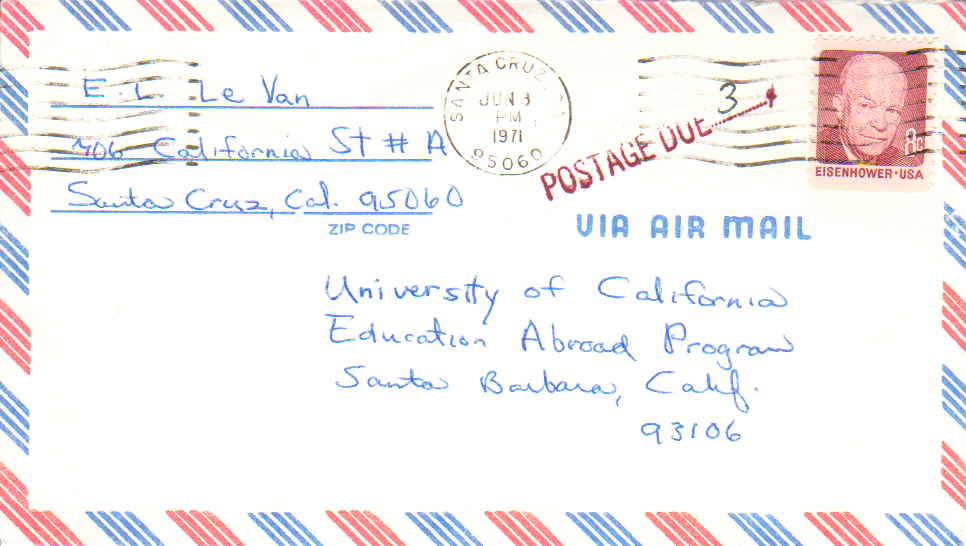 E. L. Le Van
706 California St # A
Santa Cruz, Cal. 95060
ZIP CODE
SANTA CRUZ,
JUN 3
PM
1971
95060
POSTAGE DUE 3 ¢
8c
EISENHOWER·USA
VIA AIR MAIL
University of California
Education Abroad Program
Santa Barbara, Calif.
93106